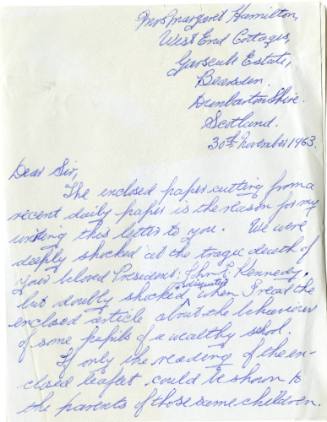 Mrs Margaret Hamilton,
West End Cottages,
Garscube Estate,
Bearsden.
Dunbartonshire.
Scotland.
30th November 1963.
Dear Sir,
The enclosed paper cutting from a
recent daily paper is the reason for my
writing this letter to you. We were
deeply shocked at the tragic death of
your beloved President: John F. Kennedy.
but doubly shocked when I read the
enclosed article about the behaviour
of some pupils of a wealthy school.
If only the reading of the en-
closed leaflet could be shown to
the parents of those same children.